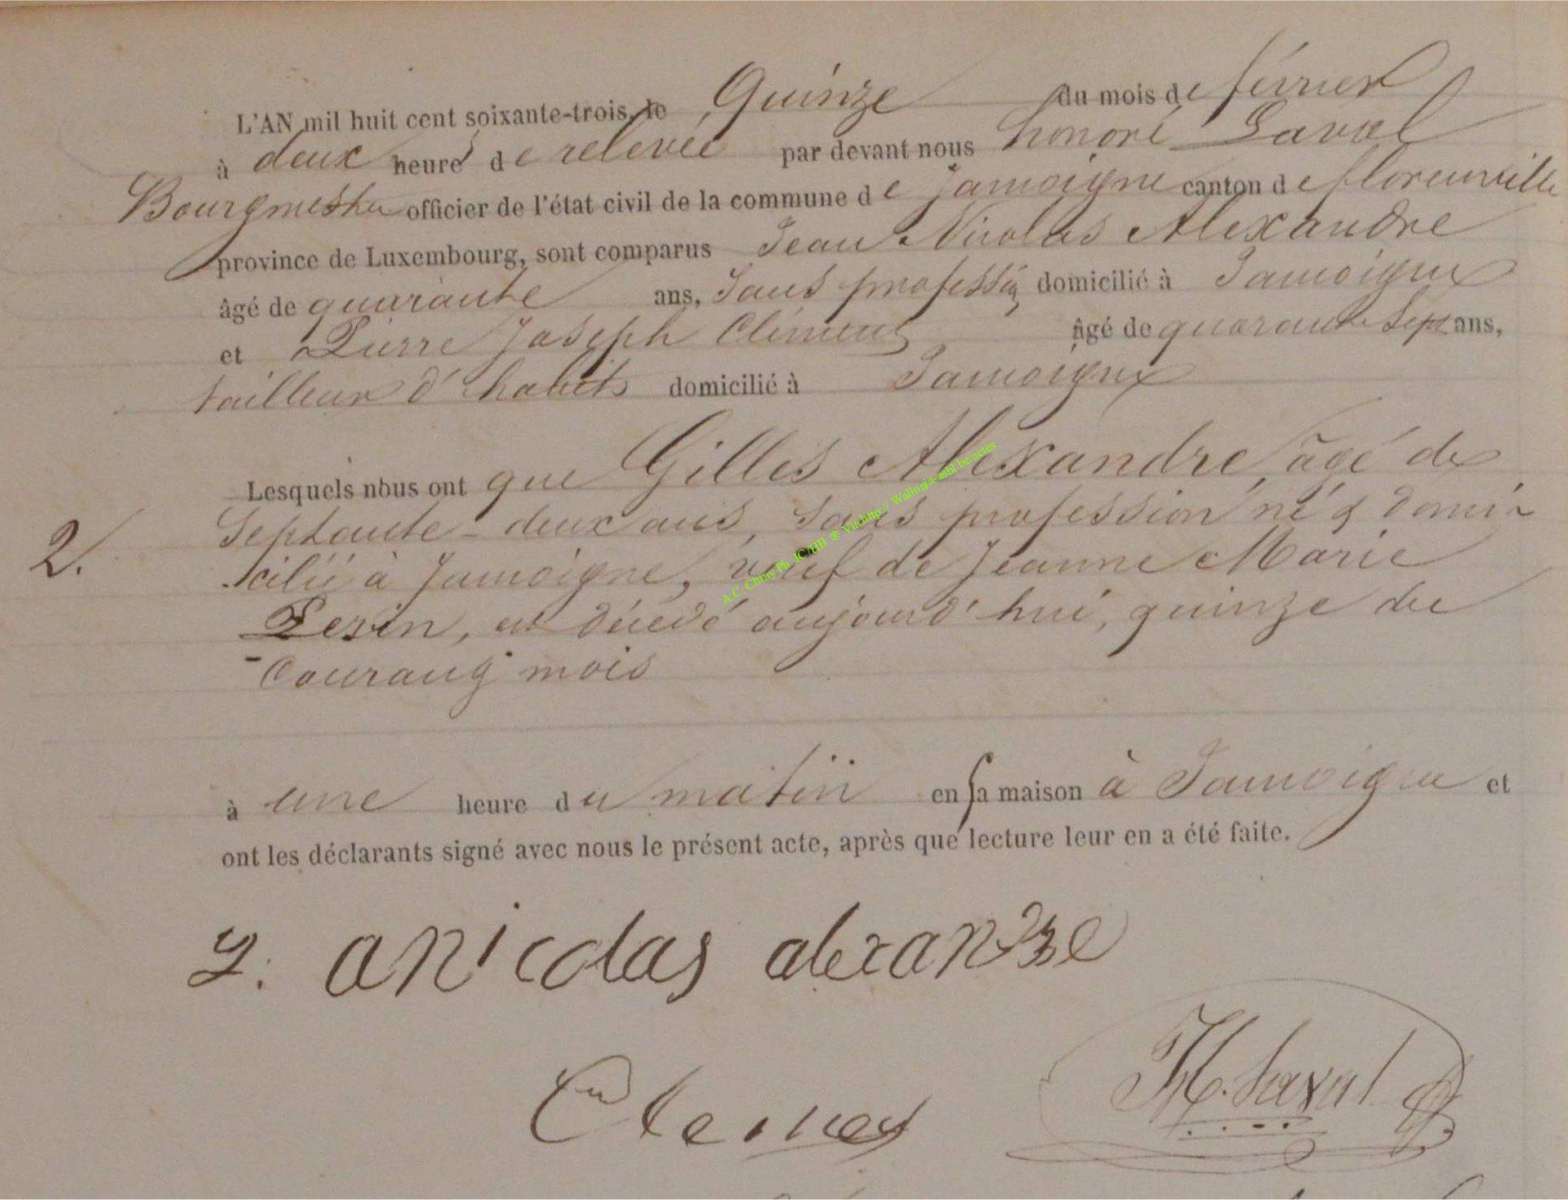 L'AN mil huit cent soixante-trois, le Quinze du mois de février
à deux heures de relevée par devant nous honoré Laval
Bourgmestre officier de l'état civil de la commune de Jamoigne canton de florenville
province de Luxembourg, sont comparus Jean Nicolas Alexandre
âgé de quarante ans, Sans profession domicilié à Jamoigne
et Pierre Joseph Clément âgé de quarante Sept ans,
tailleur d'habits domicilié à Jamoigne
Lesquels nous ont que Gilles Alexandre, âgé de
2. Septante-deux ans, Sans profession né & domi-
cilié à Jamoigne, veuf de Jeanne Marie
Perin, est décédé aujourd'hui, quinze de
Courant mois
à une heure du matin en sa maison à Jamoigne et
ont les déclarants signé avec nous le présent acte, après que lecture leur en a été faite.
anicolas alexandre
H. Laval
Clement